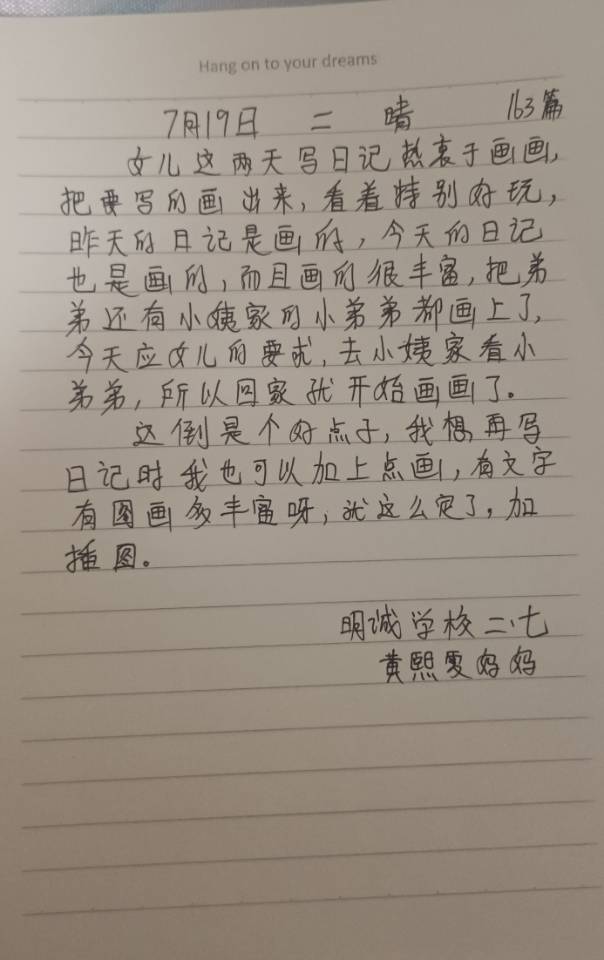 Hang on to your dreams
7月19日 二 晴 163篇
女儿这两天写日记热衷于画画,
把要写的画出来,看着特别好玩,
昨天的日记是画的,今天的日记
也是画的,而且画的很丰富,把弟
弟还有小姨家的小弟弟都画上了,
今天应女儿的要求,去小姨家看小
弟弟,所以回家就开始画画了。
这倒是个好点子,我想再写
日记时我也可以加上点画,有文字
有图画多丰富呀,就这么定了,加
插图。
明诚学校二·七
黄熙雯妈妈